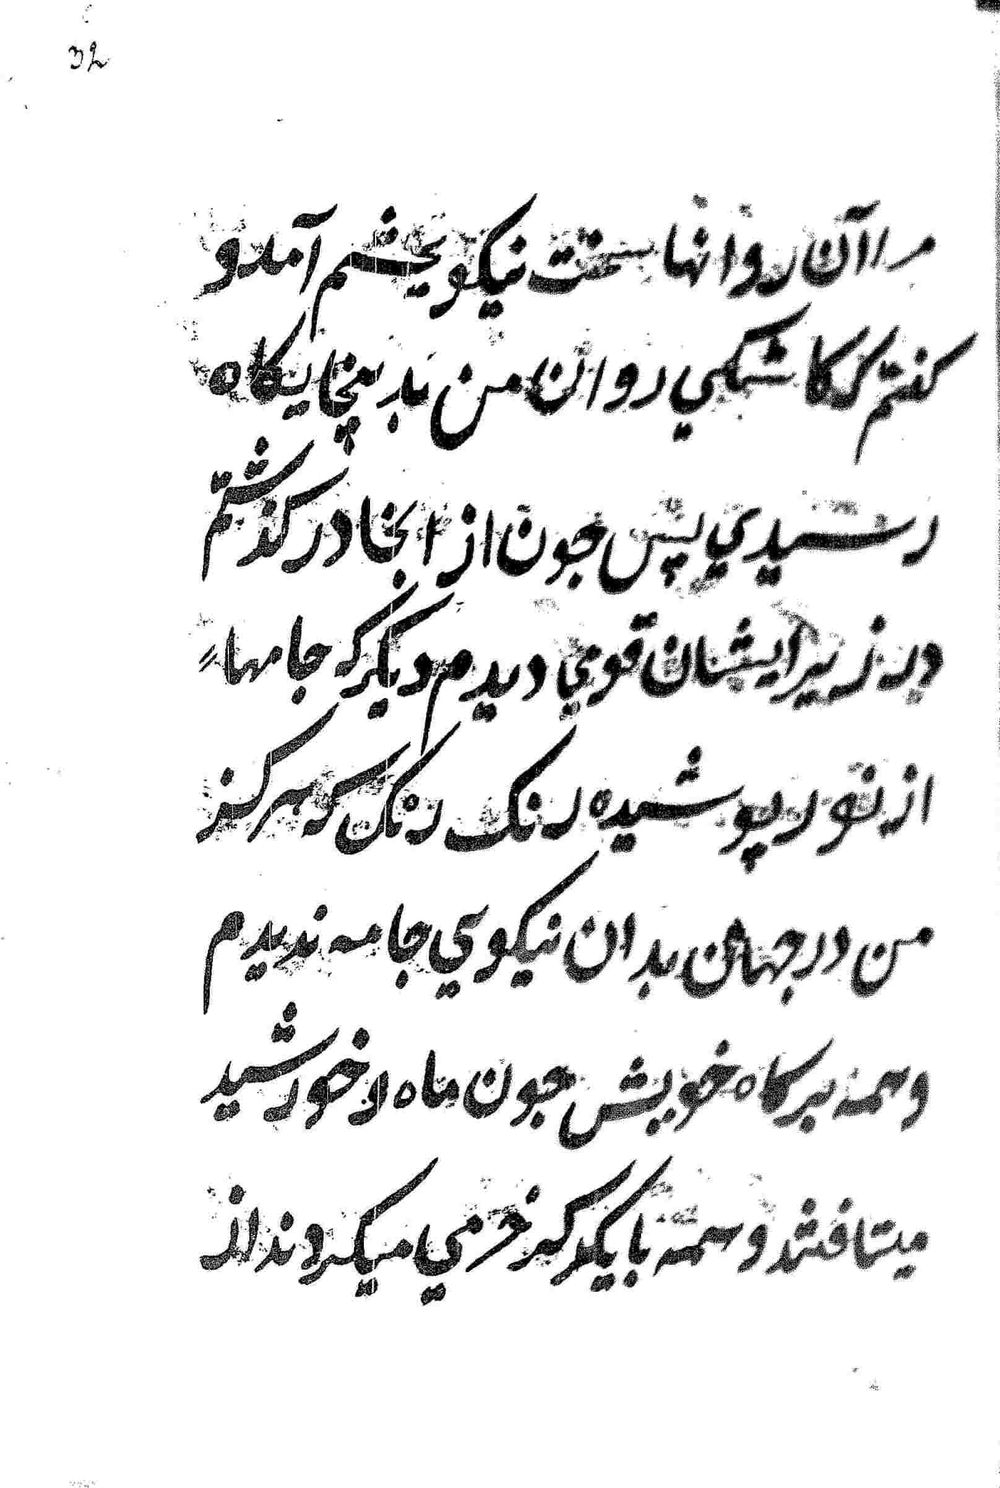 32
مرا آن روانها سخت نیکو بچشم آمد و
کفتم که کاشکي روان من بدینجایکاه
رسیدي پس جون از انجا در کذشتم
در زیر ایشان قومي دیدم دیکر که جامهاء
از نور پوشیده رنک رنک که هرکز
من در جهان بدان نیکویي جامه ندیدم
و همه برکاه خویش جون ماه و خورشید
میتافتند و همه با یکدیکر خرمي میکردند از